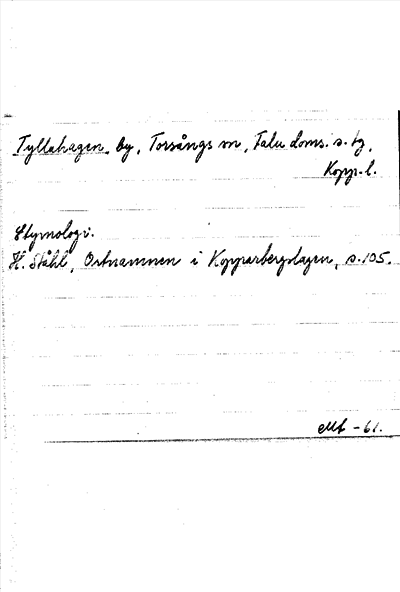 Tyllahagen, by, Torsångs sn, Falu doms. s. tg,
Kopp. l.
Etymologi.
H. Ståhl, Ortnamnen i Kopparbergslagen, s. 105.
-61.